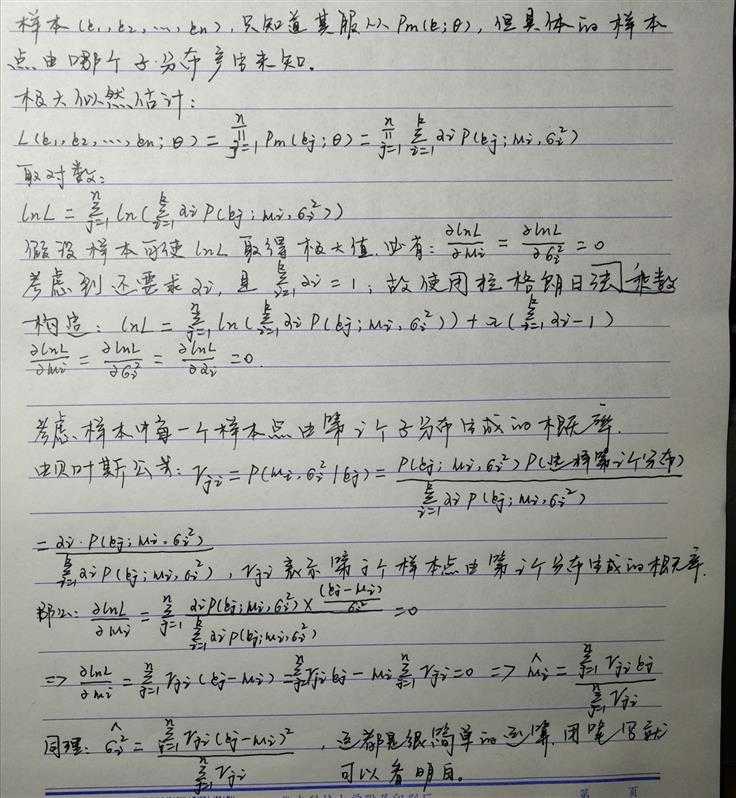 样本(k₁,k₂,…,kₙ),只知道其服从 Pm(k;θ),但具体的样本
点由哪个子分布产生未知。
极大似然估计:
L(k₁,k₂,…,kₙ;θ) = ∏_{j=1}^{n} Pm(kj;θ) = ∏_{j=1}^{n} ∑_{i=1}^{k} αi P(kj; μi, σi²)
取对数:
lnL = ∑_{j=1}^{n} ln(∑_{i=1}^{k} αi P(kj; μi, σi²))
假设样本可使 lnL 取得极大值,必有: ∂lnL/∂μi = ∂lnL/∂σi² = 0
考虑到还要求 αi,且 ∑_{i=1}^{k} αi = 1,故使用拉格朗日乘数法
构造: lnL = ∑_{j=1}^{n} ln(∑_{i=1}^{k} αi P(kj; μi, σi²)) + λ(∑_{i=1}^{k} αi − 1)
∂lnL/∂μi = ∂lnL/∂σi² = ∂lnL/∂αi = 0.
考虑样本中每一个样本点由第 i 个子分布生成的概率.
由贝叶斯公式: γji = P(μi, σi² | kj) = P(kj; μi, σi²) P(选择第i个分布) / ∑_{i=1}^{k} αi P(kj; μi, σi²)
= αi · P(kj; μi, σi²) / ∑_{i=1}^{k} αi P(kj; μi, σi²) , γji 表示第 j 个样本点由第 i 个分布生成的概率.
那么: ∂lnL/∂μi = ∑_{j=1}^{n} αi P(kj; μi, σi²) × (kj − μi)/σi² / ∑_{i=1}^{k} αi P(kj; μi, σi²) = 0
=> ∂lnL/∂μi = ∑_{j=1}^{n} γji (kj − μi) = ∑_{j=1}^{n} γji kj − μi ∑_{j=1}^{n} γji = 0 => μ̂i = ∑_{j=1}^{n} γji kj / ∑_{j=1}^{n} γji
同理: σ̂i² = ∑_{j=1}^{n} γji (kj − μi)² / ∑_{j=1}^{n} γji , 这都是很简单的运算,用笔写就
可以看明白。
第 页